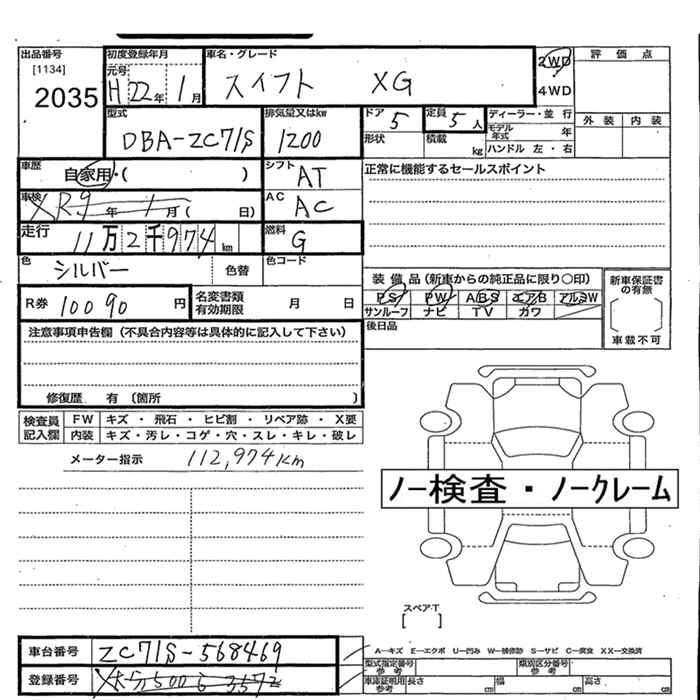 出品番号 初度登録年月 車名・グレード 評価点
[1134] 元号 2WD
2035 H22年 1月 スイフト XG 4WD
型式 排気量又はkw ドア 定員 ディーラー・並行 外装 内装
DBA-ZC71S 1200 5 5人 モデル年式 年
形状 積載 kg ハンドル 左・右
車歴 自家用・( ) シフト AT 正常に機能するセールスポイント
車検 XR9年 1月( 日) AC AC
走行 11万2千974km 燃料 G
色 シルバー 色替 色コード 装備品(新車からの純正品に限り○印) 新車保証書の有無
R券 10090円 名変書類有効期限 月 日 PS PW ABS エアB アルミW
サンルーフ ナビ TV カワ
注意事項申告欄(不具合内容等は具体的に記入して下さい) 後日品 車載不可
修復歴 有 〔箇所 〕
検査員記入欄 FW キズ・飛石・ヒビ割・リペア跡・X要
内装 キズ・汚レ・コゲ・穴・スレ・キレ・破レ
メーター指示 112,974Km
ノー検査・ノークレーム
スペアT
[ ]
車台番号 ZC71S-568469 A―キズ E―エクボ U―凹み W―補修跡 S―サビ C―腐食 XX―交換済
登録番号 型式指定番号参考 類別区分番号参考
車庫証明用参考 長さ cm 幅 cm 高さ cm